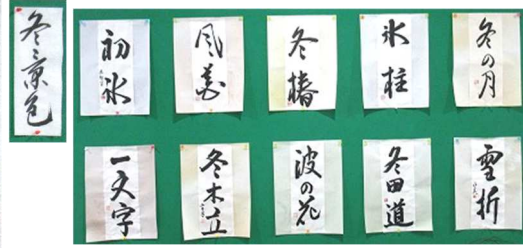 冬景色
初氷
風花
冬椿
氷柱
冬の月
一文字
冬木立
波の花
冬田道
雪折